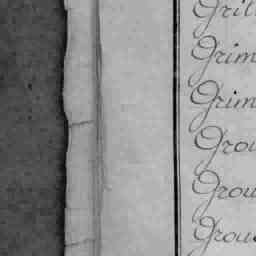 Gril
Grim
Grim
Grou
Grou
Grous